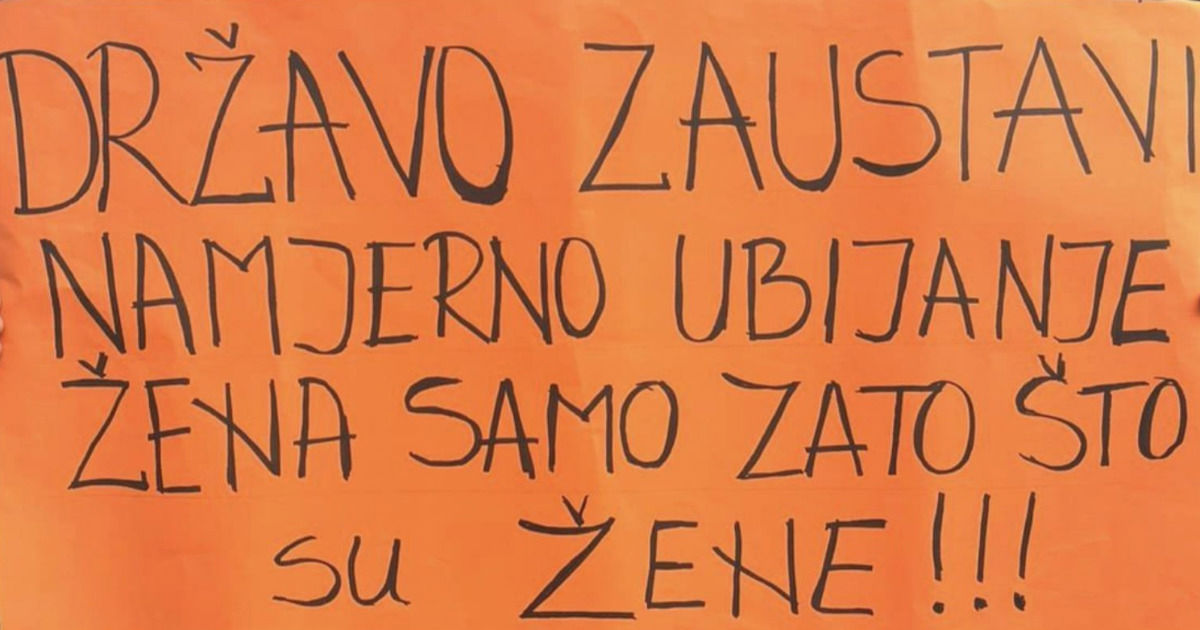 DRŽAVO ZAUSTAVI
NAMJERNO UBIJANJE
ŽENA SAMO ZATO ŠTO
su ŽENE!!!